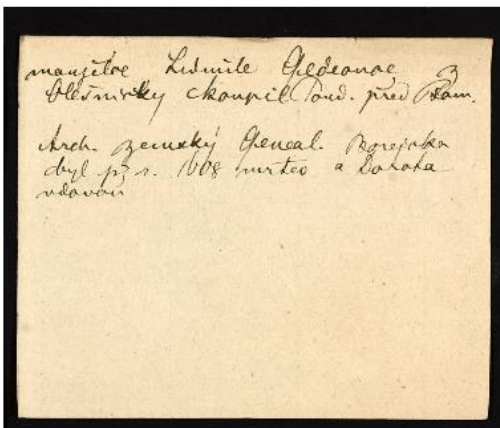 manželce Lidmile Gedeonové z
Olešničky skoupil Toud. před Kam.
Arch. zemský Geneal. Borejoka
byl již r. 1608 mrtev a Dorota
vdovou